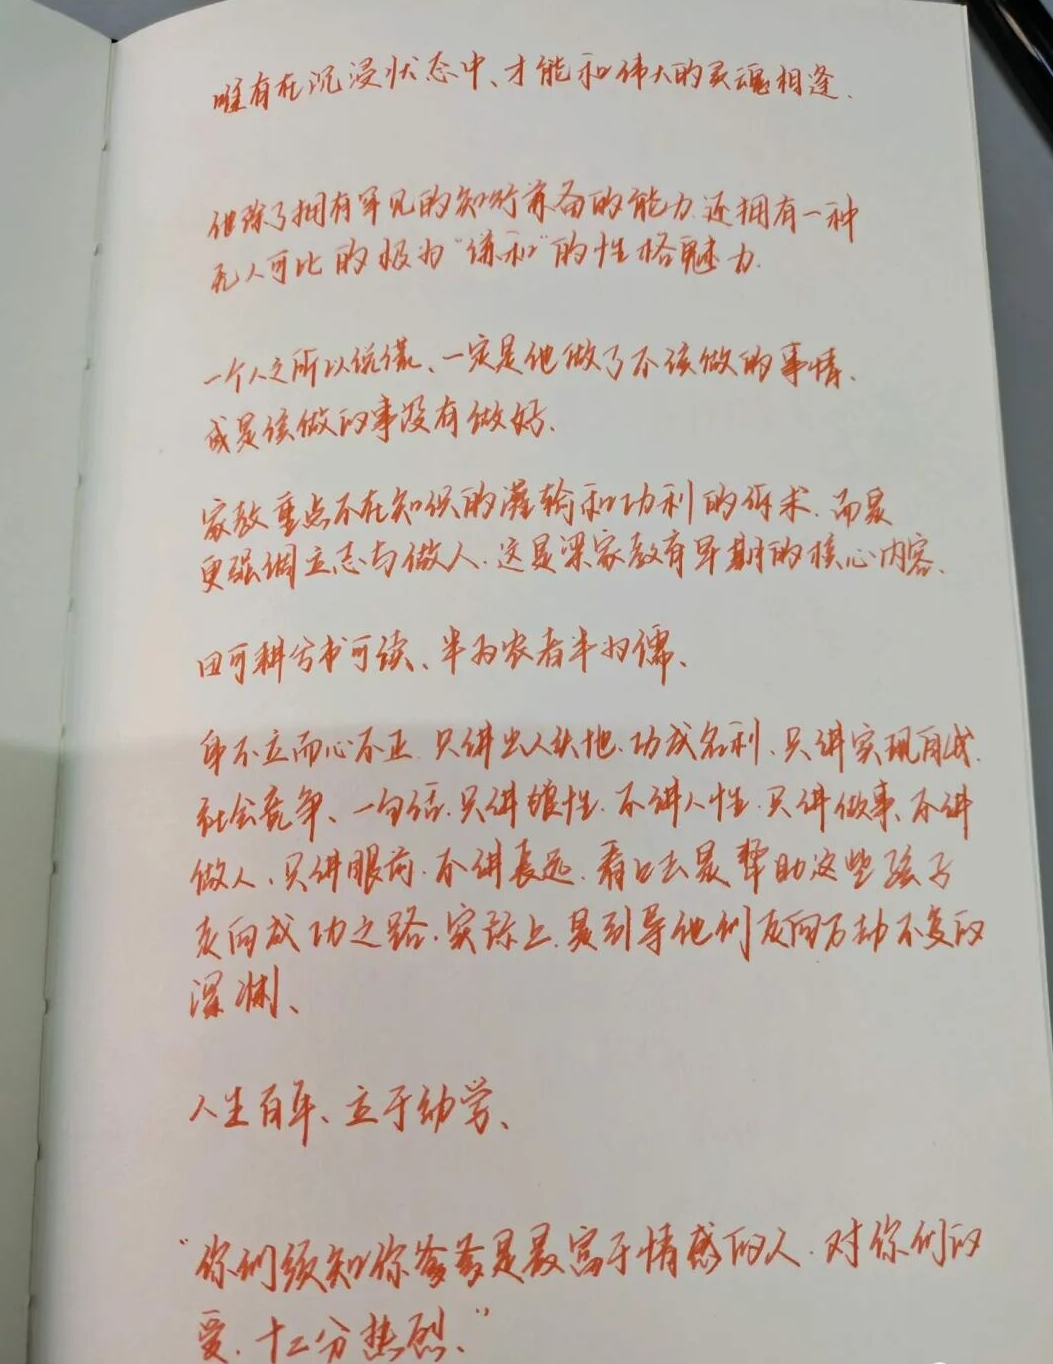 唯有在沉浸状态中、才能和伟大的灵魂相逢.
他除了拥有罕见的知行兼备的能力.还拥有一种
无人可比的极为“谦和”的性格魅力.
一个人之所以说谎、一定是他做了不该做的事情、
或是该做的事没有做好.
家教重点不在知识的灌输和功利的诉求.而是
更强调立志与做人.这是梁家教育早期的核心内容、
田可耕兮书可读、半为农者半为儒、
身不立而心不正.只讲出人头地.功成名利.只讲实现自我.
社会竞争、一句话.只讲狼性.不讲人性.只讲做事、不讲
做人、只讲眼前.不讲长远.看上去是帮助这些孩子
走向成功之路.实际上.是引导他们走向万劫不复的
深渊、
人生百年、立于幼学、
“你们须知你爹爹是最富于情感的人.对你们的
爱.十二分热烈.”